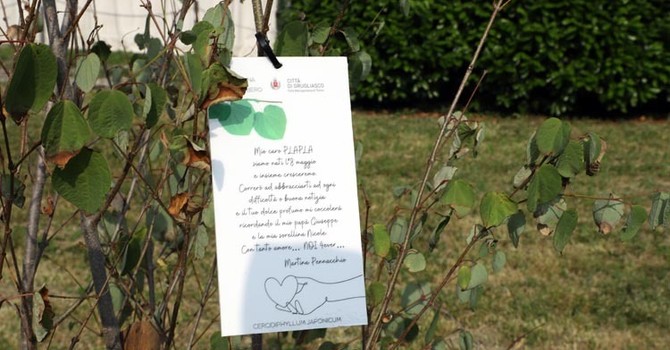 CITTÀ
DI GRUGLIASCO
Mio caro PLAPLA
siamo nati l'8 maggio
e insieme cresceremo.
Correrò ad abbracciarti ad ogni
difficoltà e buona notizia
e il tuo dolce profumo mi coccolerà
ricordando il mio papà Giuseppe
e la mia sorellina Nicole
Con tanto amore... NOI 4ever...
Martina Pannocchia
CERCIDIPHYLLUM JAPONICUM